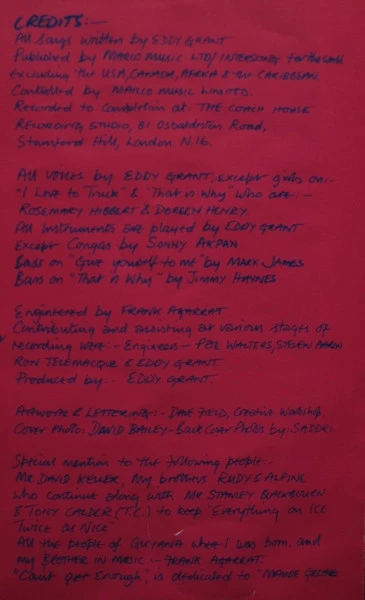 CREDITS:—
All songs written by EDDY GRANT
Published by MARCO MUSIC LTD/INTERSONG for the world
excluding the USA, CANADA, AFRICA & the CARIBBEAN.
Controlled by MARCO MUSIC Limited.
Recorded to Completion at THE COACH HOUSE
RECORDING STUDIO, 81 Osbaldeston Road,
Stamford Hill, London N.16.
All Voices by EDDY GRANT, except girls on:-
"I Love to Truck" & "That is Why" who are:-
ROSEMARY HIBBERT & DOREEN HENRY.
All Instruments are played by EDDY GRANT
Except Congas by SONNY AKPAN
Bass on "Give yourself to me" by MARK JAMES
Bass on "That is Why" by JIMMY HAYNES
Engineered by FRANK AGARRAT
Contributing and assisting at various stages of
recording were:- Engineers - PHIL WALTERS, STEVEN
RON TELEMACQUE & EDDY GRANT.
Produced by:- EDDY GRANT.
ARTWORK & LETTERING:- DAVE FIELD, Creative Workshop
COVER PHOTO: DAVID BAILEY - BACK COVER PHOTOS by:
Special mention to the following people:-
MR DAVID my brothers RUDY & ALPINE
who continue along with MR STANLEY
& TONY CALDER (T.C.) to keep "Everything on ICE
TWICE as Nice".
All the people of GUYANA where I was born, and
my BROTHER IN MUSIC:- FRANK AGARRAT.
"Can't get Enough" is dedicated to MAUDE GEORGE